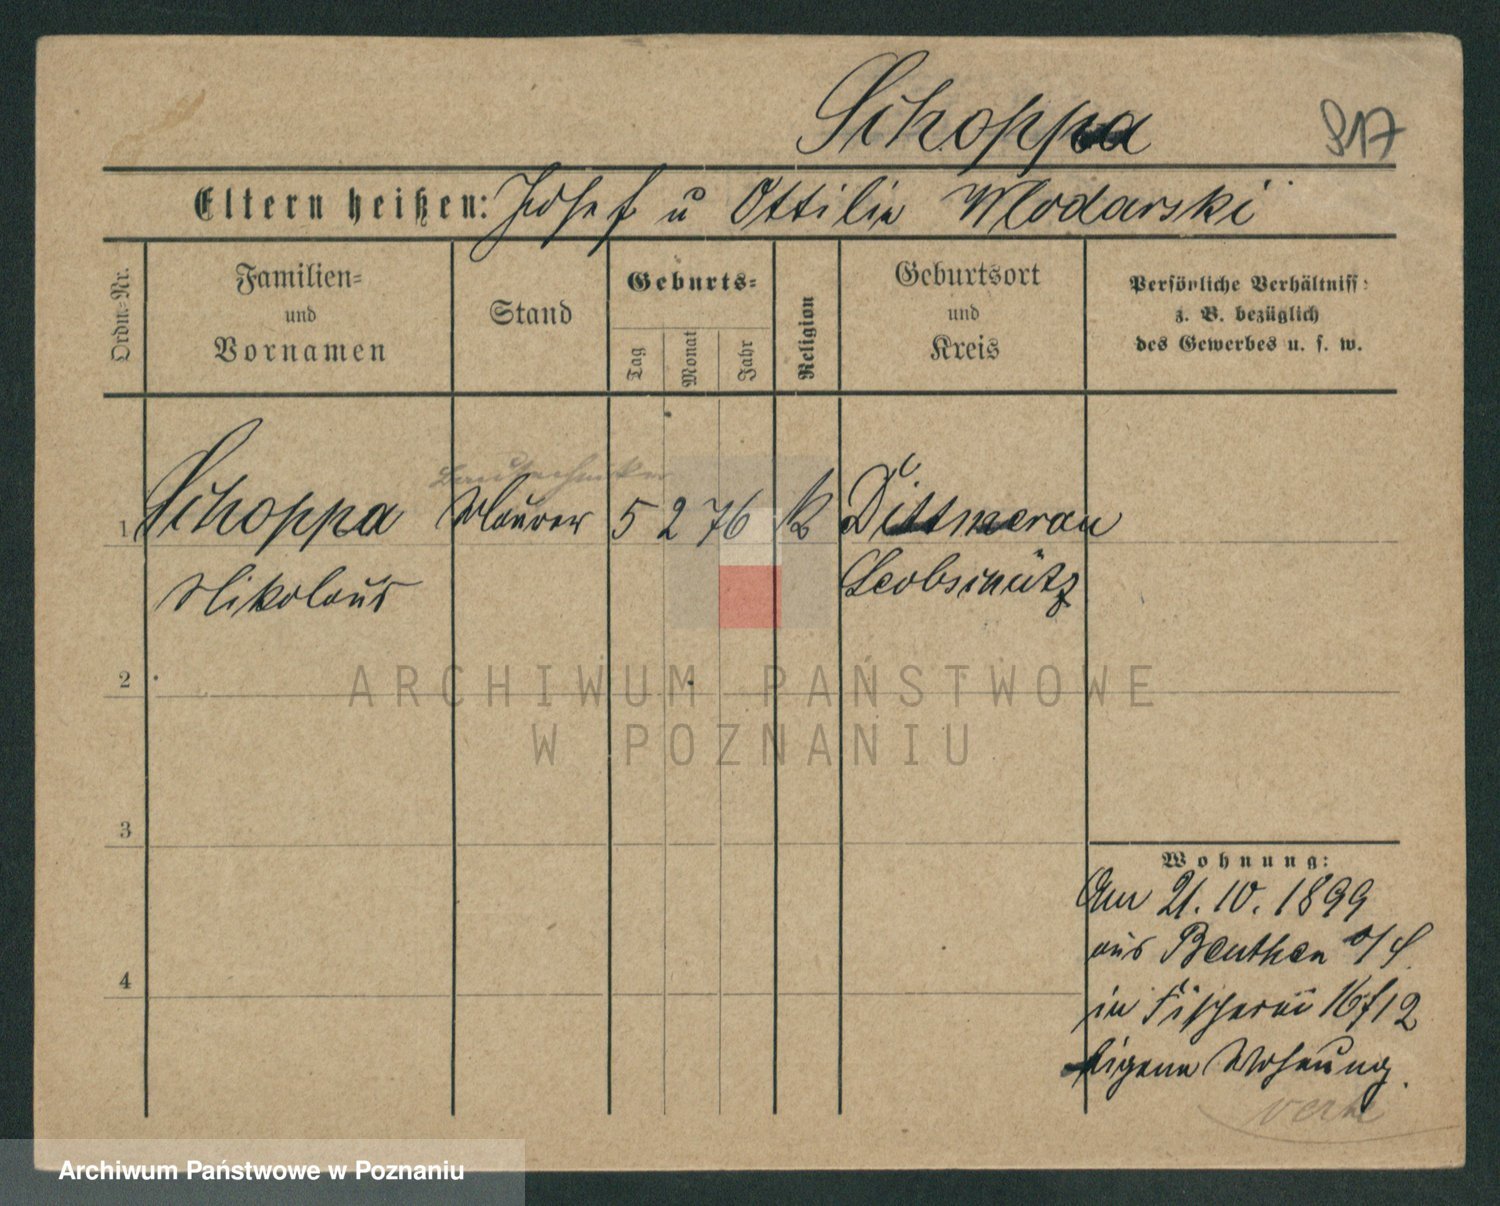 Schoppa
817
Eltern heißen: Josef u Ottilie Wlodarski
Ordn.-Nr.
Familien-
und
Vornamen
Stand
Geburts-
Tag
Monat
Jahr
Religion
Geburtsort
und
Kreis
Persönliche Verhältniss:
z. B. bezüglich
des Gewerbes u. s. w.
Bautechniker
1 Schoppa Maurer 5 2 76 k Dittmerau
Nikolaus Leobschütz
2
ARCHIWUM PAŃSTWOWE
W POZNANIU
3
Wohnung:
Am 21. 10. 1899
aus Beuthen o/S.
in Fischerei 16/12
eigene Wohnung.
4
verh
Archiwum Państwowe w Poznaniu